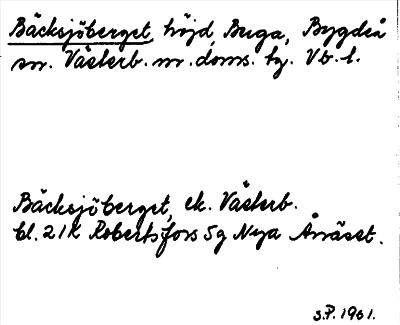 Bäcksjöberget, höjd, Buga, Bygdeå
sn. Västerb. n. doms. tg. Vb. l.
Bäcksjöberget, ek. Västerb.
bl. 21K Robertsfors 5g Nya Ånäset.
S.P. 1961.